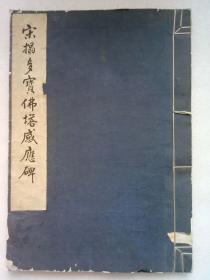 宋搨多寶佛塔感應碑